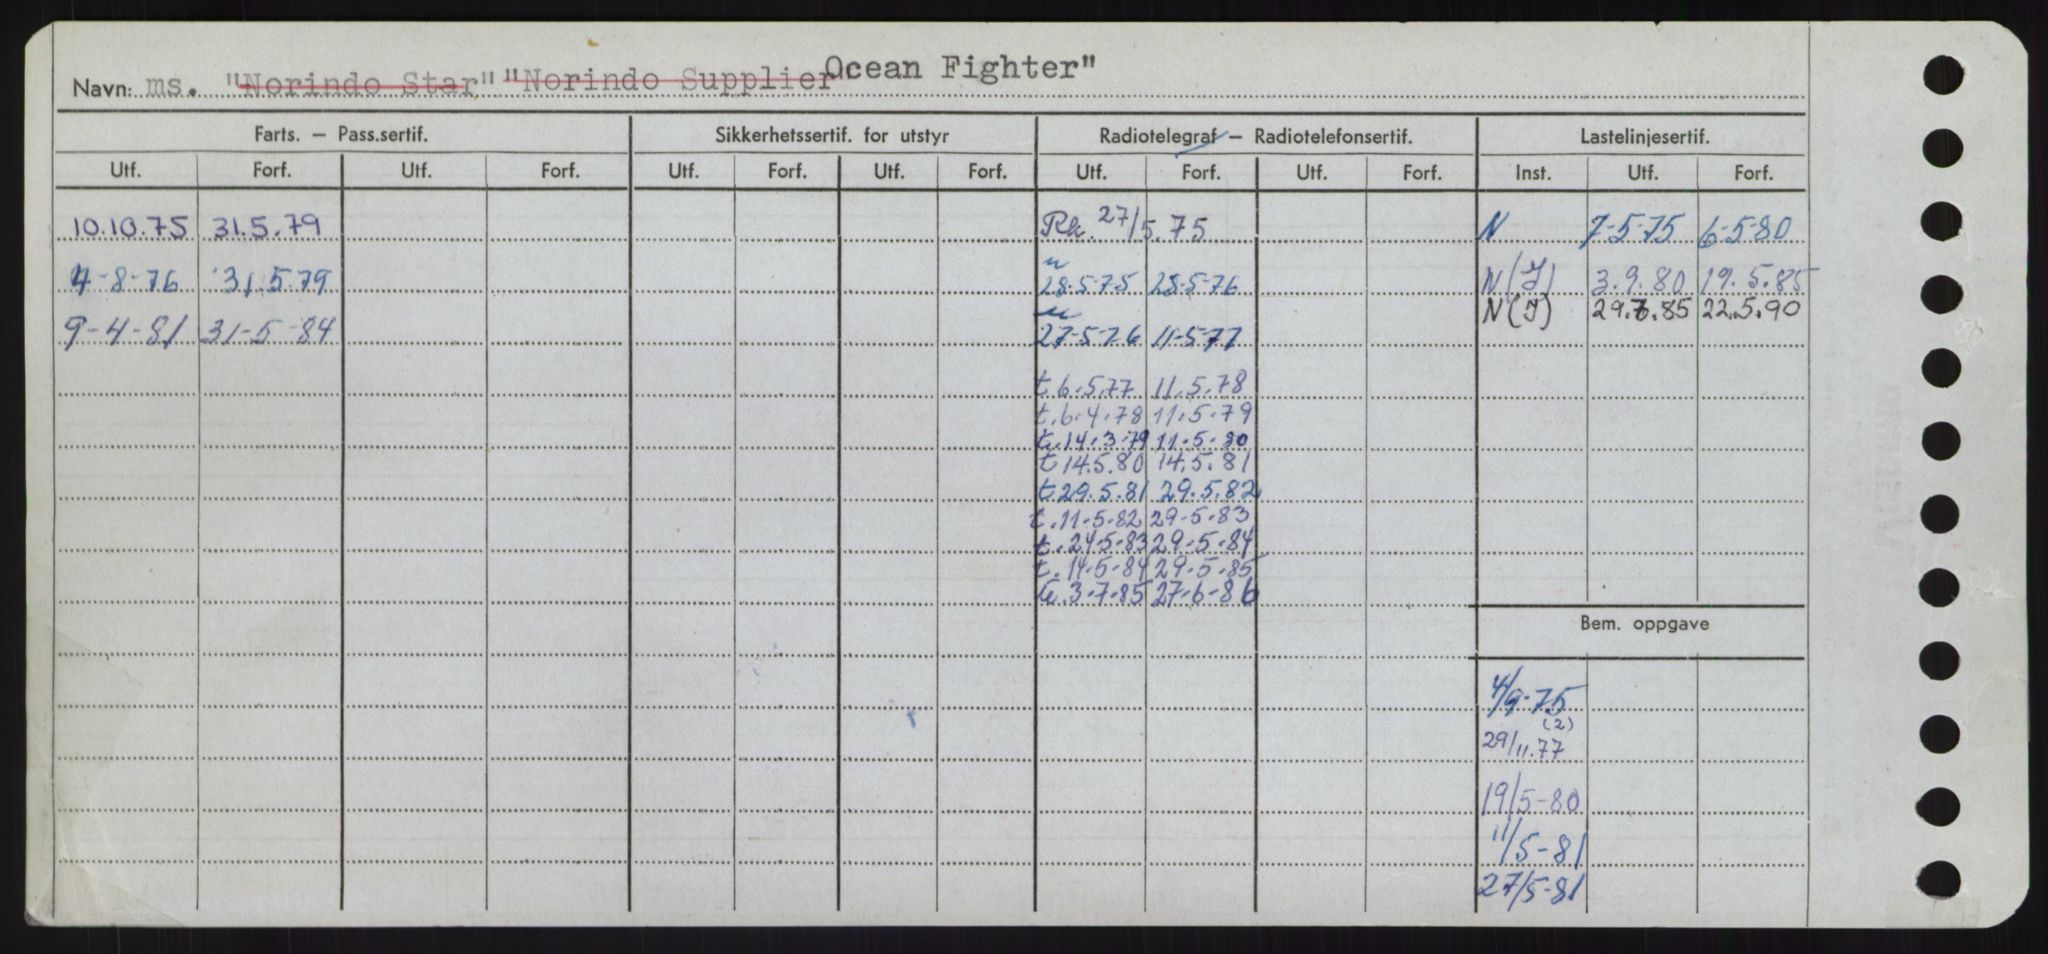 Navn: ms. "Norindo Star" "Norindo Supplier" Ocean Fighter"
Farts. — Pass.sertif. Sikkerhetssertif. for utstyr Radiotelegraf — Radiotelefonsertif. Lastelinjesertif.
Utf. Forf. Utf. Forf. Utf. Forf. Utf. Forf. Utf. Forf. Utf. Forf. Inst. Utf. Forf.
10.10.75 31.5.79 Rk. 27/5.75 N 7-5-75 6-5-80
4-8-76 31.5.79 28.5-75 28-5-76 N(I) 3.9.80 19.5.85
N(I) 29.7.85 22.5.90
9-4-81 31-5-84 27-5-76 11-5-77
t. 6.5.77 11.5.78
t. 6.4.78 11.5.79
t. 14.3.79 11.5.80
t 14.5.80 14.5.81
t. 29.5.81 29.5.82
t. 11-5-82 29-5-83
t. 24-5-83 29-5-84
t. 14-5-84 29-5-85
t. 3-7-85 27-6-86
Bem. oppgave
4/9-75
(2)
29/11.77
19/5-80
11/5-81
27/5-81